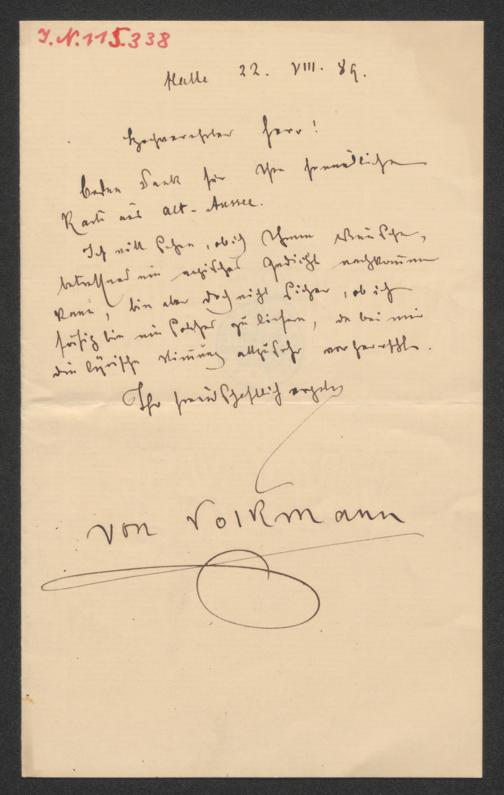 J.N.115.338
Halle 22. VIII. 89.
Hochverehrter Herr!
Besten Dank für Ihre freundliche
Karte aus Alt-Aussee.
Ich will sehen, ob ich Ihrem Wunsche,
betreffend ein episches Gedicht nachkommen
kann, bin aber doch nicht sicher, ob ich
fähig bin ein solches zu liefern, da bei mir
die lyrische Stimmung allzusehr vorherrscht.
Ihr freundschaftlich ergebener
von Volkmann